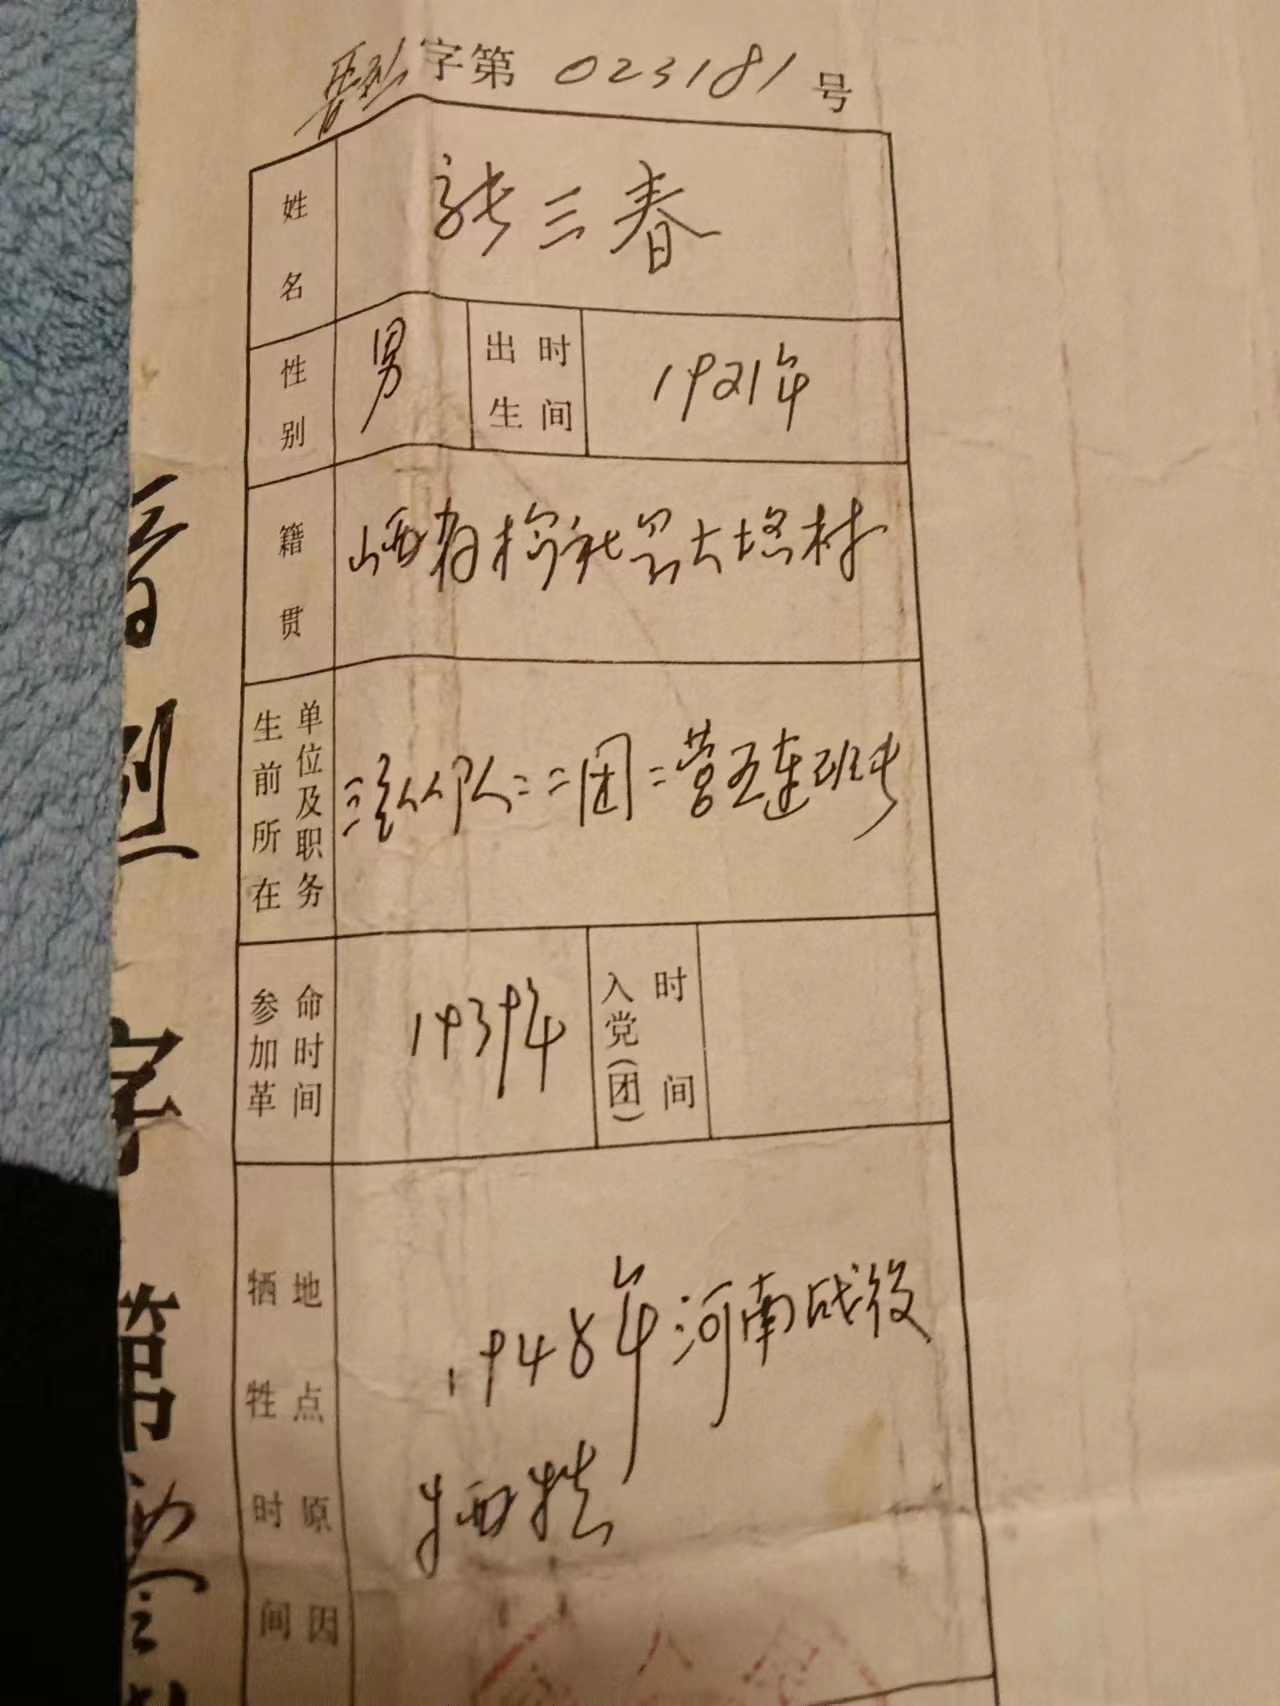 晋烈字第 023181 号
姓名 张三春
性别 男 出生时间 1921年
籍贯 山西省榆社县大塔村
生前所在单位及职务 三纵队二二团二营五连班长
参加革命时间 1939年 入党(团)时间
牺牲时间地点原因 1948年河南战役
牺牲
晋烈字第